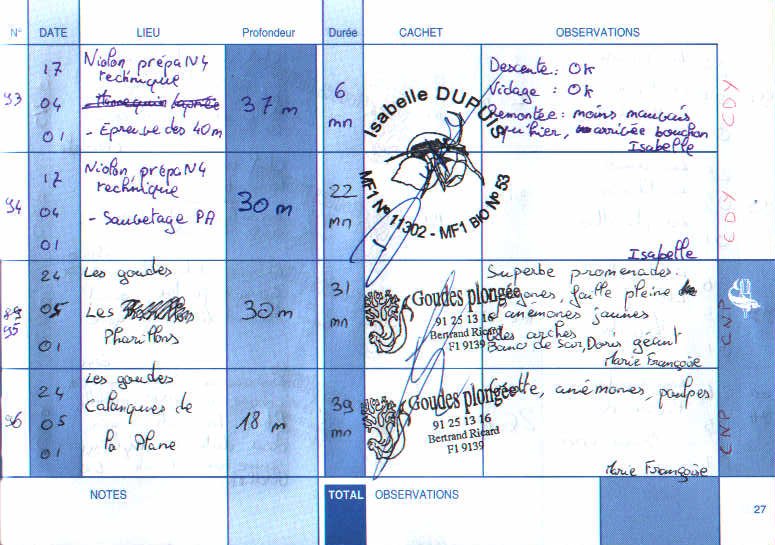 N° DATE LIEU Profondeur Durée CACHET OBSERVATIONS
93
17
04
01
Niolon, prépa N4
technique
- Epreuve des 40m
37 m
6
mn
Isabelle DUPUIS
MF1 N° 11302 - MF1 BIO N° 53
Descente : OK
Vidage : OK
Remontée : moins mauvais
qu'hier, arrivée bouchon
Isabelle
CDY
94
17
04
01
Niolon, prépa N4
technique
- Sauvetage PA
30 m
22
mn
Isabelle
CDY
95
24
05
01
Les goudes
Les
Pharillons
30 m
31
mn
Goudes plongée
91 25 13 16
Bertrand Ricard
F1 9139
Superbe promenades.
Gorgones, faille pleine
d'anémones jaunes
des arches
Banc de Sar, Doris géant
Marie Françoise
CNP
96
24
05
01
Les goudes
Calanques de
la Plane
18 m
39
mn
Goudes plongée
91 25 13 16
Bertrand Ricard
F1 9139
Grotte, anémones, poulpes
Marie Françoise
CNP
NOTES TOTAL OBSERVATIONS
27